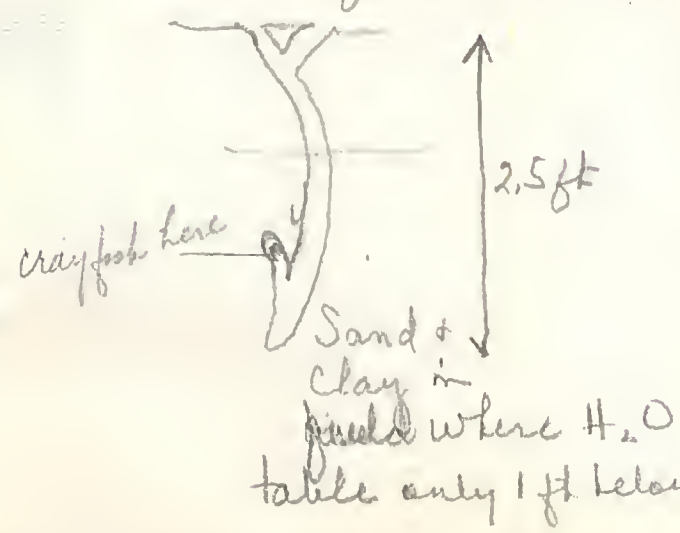 2.5 ft
crayfish here
Sand +
Clay in
field where H2O
table only 1 ft below